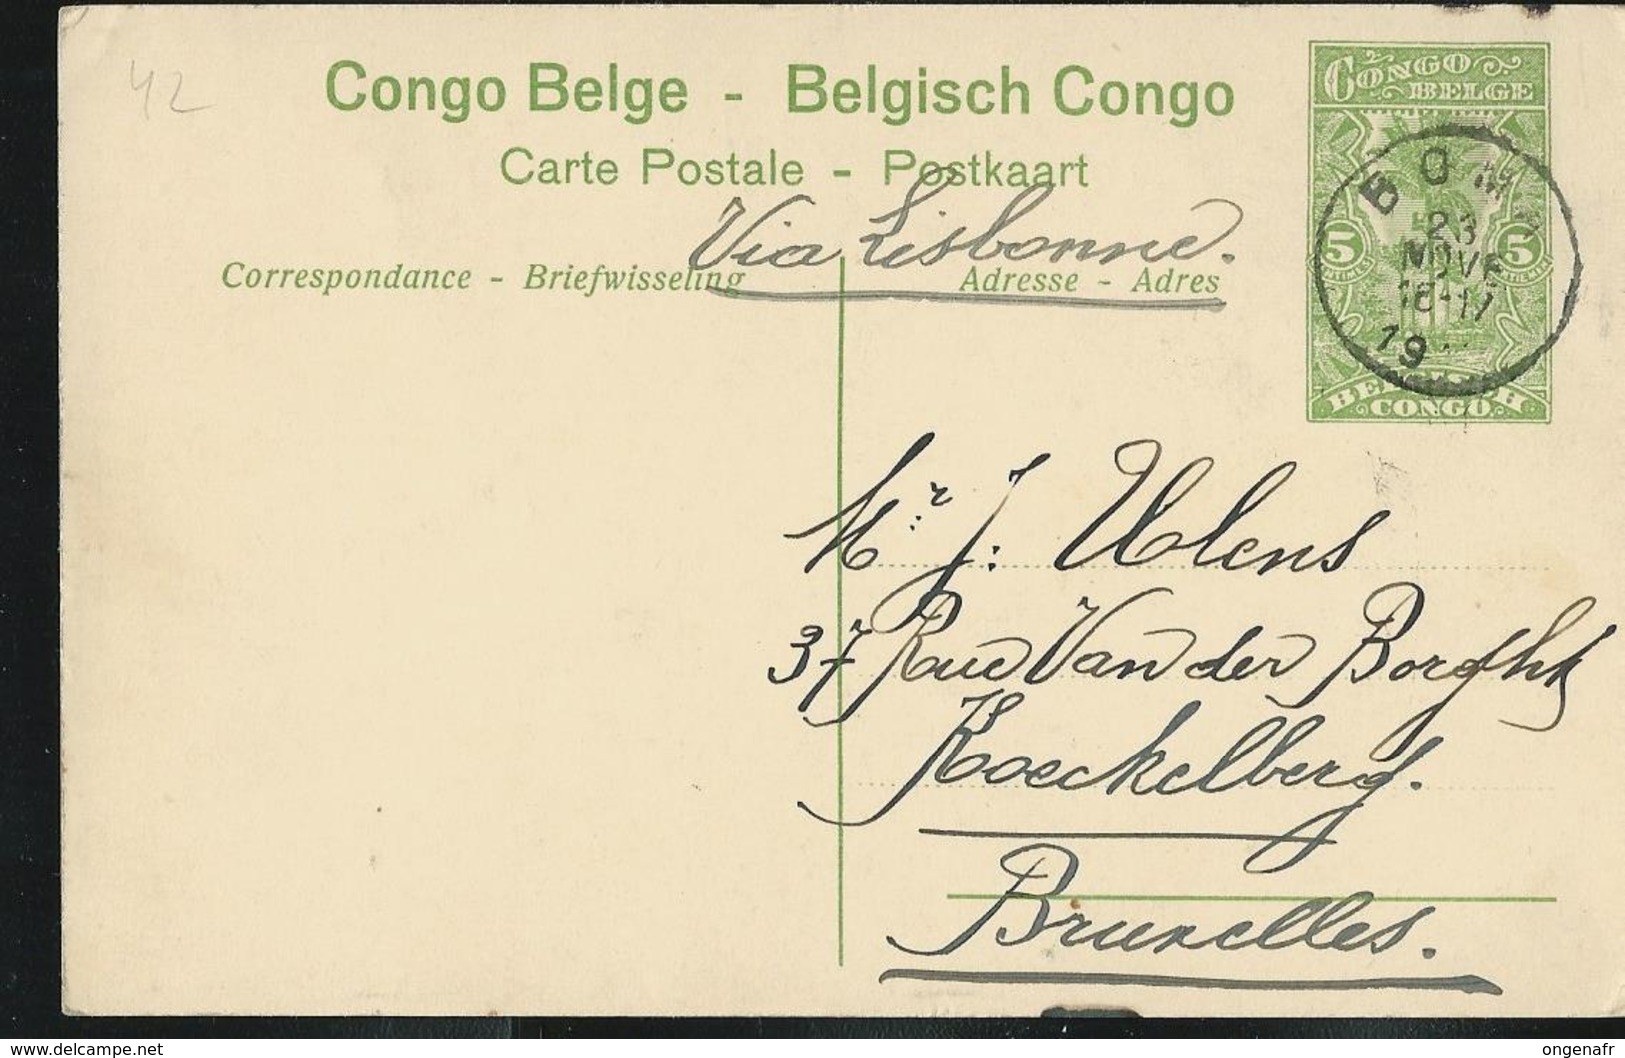 42
Congo Belge - Belgisch Congo
Carte Postale - Postkaart
Via Lisbonne.
Correspondance - Briefwisseling
Adresse - Adres
CONGO
BELGE
5 5
CENTIMES
CONGO
BOMA
23
NOVE
16-17
19
Mr. J. Uolens
37 Rue Van der Borght
Koeckelberg.
Bruxelles.
www.delcampe.net
ongenafr